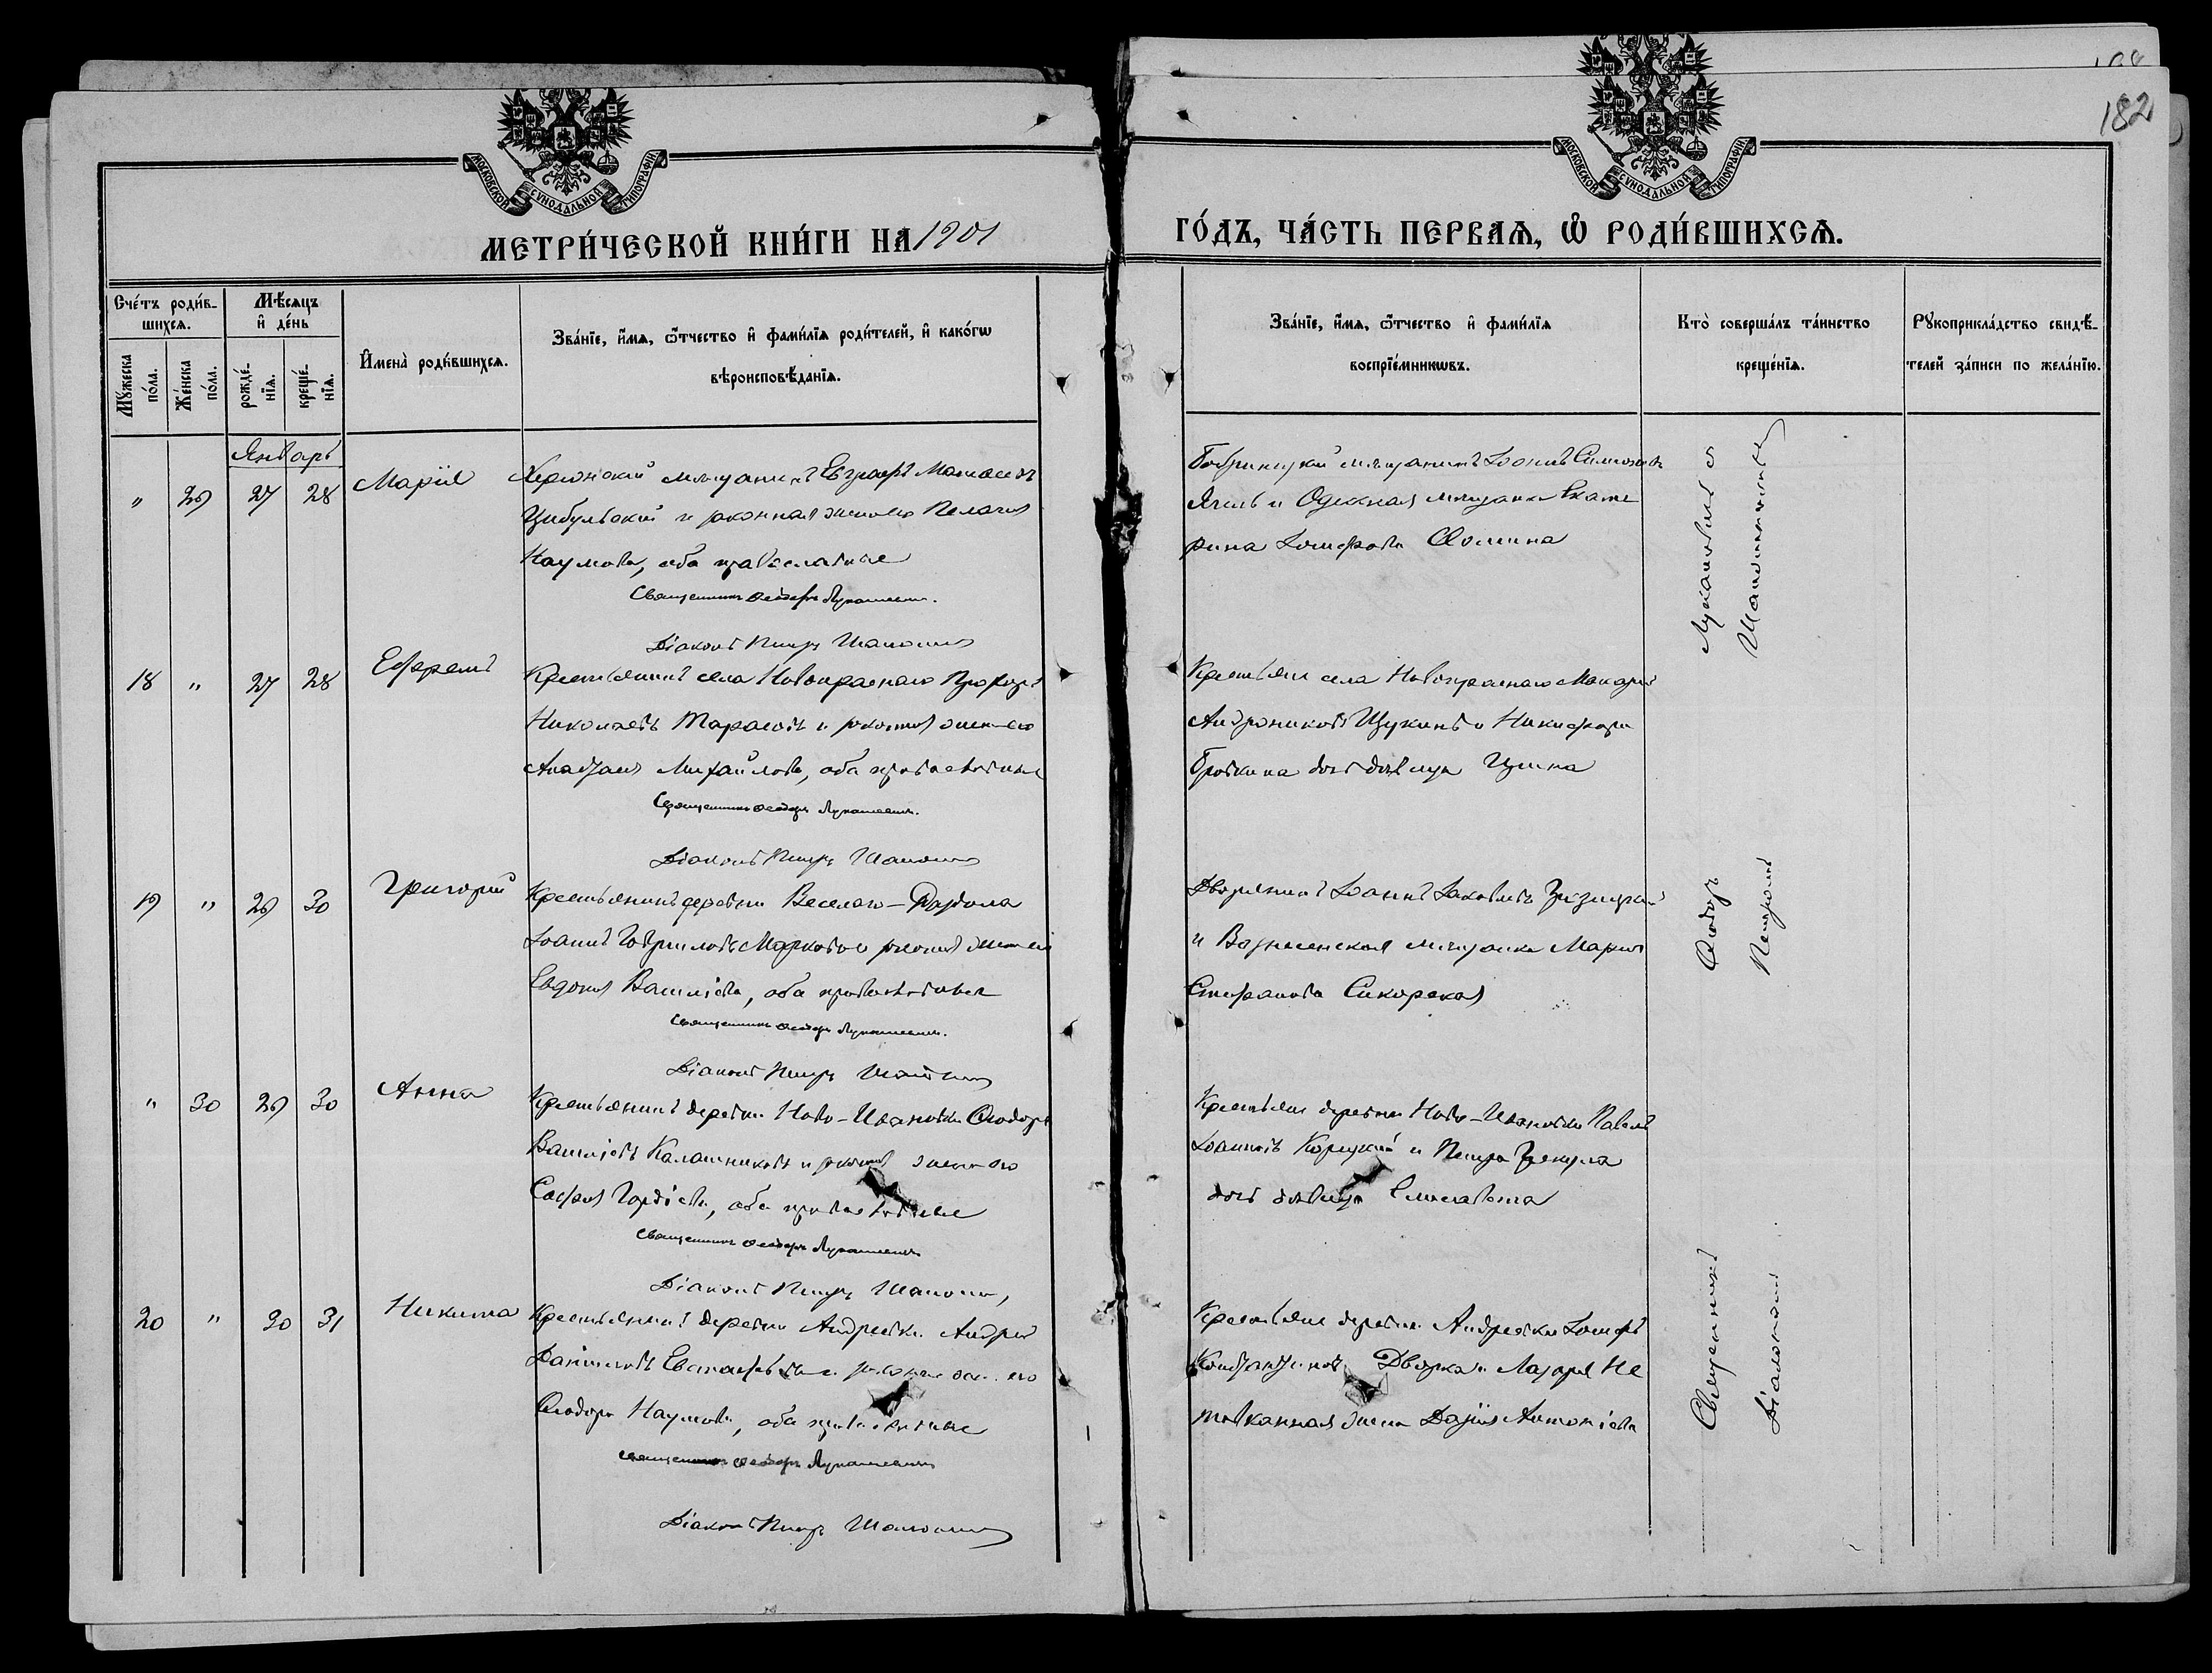 182
МОСКОВСКОЙ СѴНОДАЛЬНОЙ ТИПОГРАФІИ
МОСКОВСКОЙ СѴНОДАЛЬНОЙ ТИПОГРАФІИ
МЕТРИ́ЧЕСКОЙ КНИ́ГИ НА 1901
ГО́ДЪ, ЧА́СТЬ ПЕРВАЯ, Ѿ РОДИ́ВШИХСЯ.
Сче́тъ роди́в-
шихся.
Мѣ́сяцъ
и҆ де́нь
Мꙋ́жеска по́ла.
Же́нска по́ла.
рожде́-
нїя.
креще́-
нїя.
И҆мена̀ роди́вшихся.
Зва́нїе, и҆́мя, ѻ҆́тчество и҆ фами́лїя роди́телей, и҆ како́гѡ
вѣроисповѣ́данїя.
Зва́нїе, и҆́мя, ѻ҆́тчество и҆ фами́лїя
воспрїе́мникѡвъ.
Кто̀ соверша́лъ та́инство
креще́нїя.
Рꙋкоприкла́дство свидѣ́-
телей за́писи по жела́нїю.
Январь
" 29 27 28 Марія Херсонскій мѣщанинъ Евграфъ
Цибульскій и законная жена его Пелагія
Наумова, оба православные
Священникъ Ѳеодоръ Лукашевичъ.
Діаконъ Петръ
Бобринецкій мѣщанинъ Іоаннъ Симоновъ
и Одесская мѣщанка Екате
рина Іосифова Ѳомина
18 " 27 28 Ефремъ Крестьянинъ села Новокраснаго Прохоръ
Николаевъ Тарасовъ и законная жена его
Анастасія Михайлова, оба православные
Священникъ Ѳеодоръ Лукашевичъ.
Діаконъ Петръ
Крестьяне села Новокраснаго Макарій
Андрониковъ Щукинъ и Никифора
дочь дѣвица
19 " 29 30 Григорій Крестьянинъ деревни Веселаго-Раздола
Іоаннъ Гавриловъ Марковъ и законная жена его
Евдокія Василіева, оба православные
Священникъ Ѳеодоръ Лукашевичъ.
Діаконъ Петръ
Дворянинъ Іоаннъ Іаковлевъ
и Вознесенская мѣщанка Марія
Стефанова Сикорская
" 30 29 30 Анна Крестьянинъ деревни Ново-Ивановки Ѳеодоръ
Василіевъ Калашниковъ и законная жена его
Софія Гордіева, оба православные
Священникъ Ѳеодоръ Лукашевичъ
Діаконъ Петръ
Крестьяне деревни Ново-Ивановки Павелъ
Іоанновъ Корецкій и Петра
дочь дѣвица Елисавета
20 " 30 31 Никита Крестьянинъ деревни Андреевки Андрей
Даніиловъ Евстафьевъ и законная жена его
Ѳеодора Наумова, оба православные
Священникъ Ѳеодоръ Лукашевичъ
Діаконъ Петръ
Крестьяне деревни Андреевки Іосифъ
Константиновъ и Лазаря Не
жена Дарія Антоніева
Священникъ Ѳеодоръ Лукашевичъ и
Діаконъ Петръ